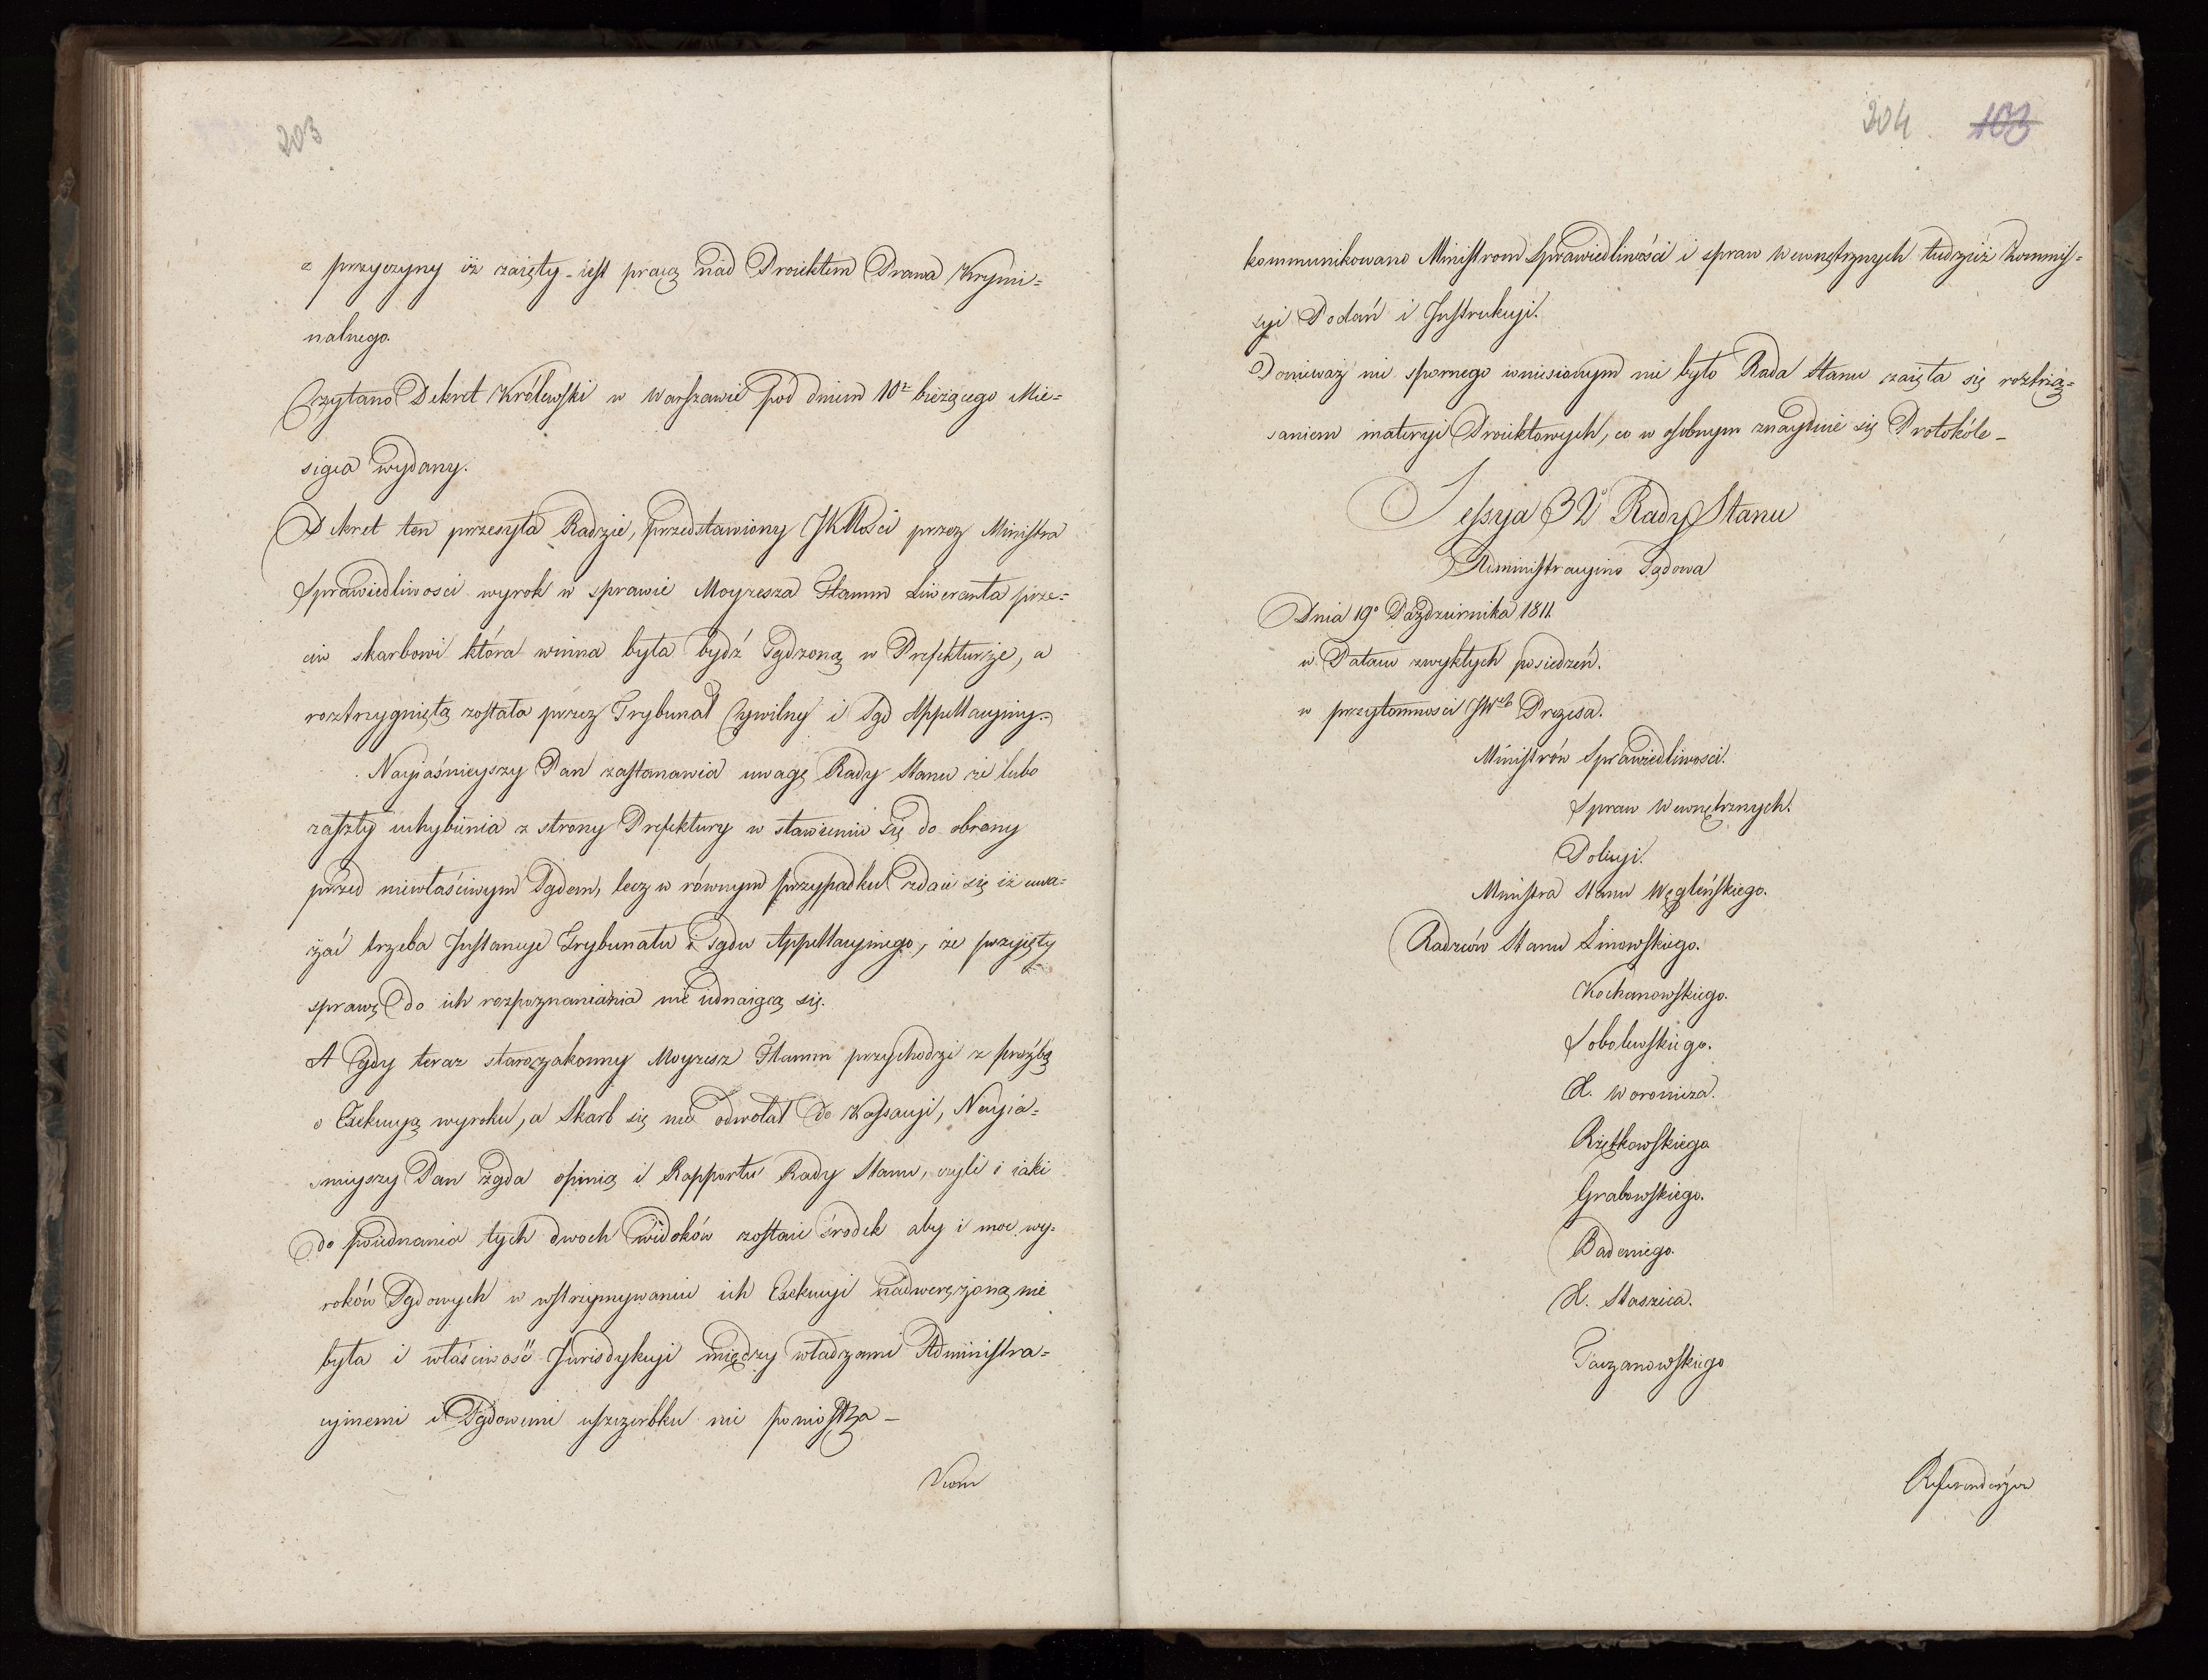 203
z przyczyny iż zaięty iest pracą nad Proiektem Prawa Krymi=
nalnego.
Czytano Dekret Królewski w Warszawie pod dniem 10º bieżącego Mie=
siąca wydany.
Dekret ten przesyła Radzie, przedstawiony JKMości przez Ministra
Sprawiedliwosci wyrok w sprawie Moyzesza Hamm Liweranta prze=
ciw skarbowi która winna była bydź Sądzoną w Prefekturze, a
roztrzygniętą została przez Trybunał Cywilny i Sąd Appellacyiny.
Nayiaśnieyszy Pan zastanawia uwagę Rady Stanu że lubo
zaszły uchybienia z strony Prefektury w stawieniu się do obrony
przed niewłaściwym Sądem, lecz w równym przypadku zdaie się iż uwa=
żać trzeba Instancye Trybunału i Sądu Appellacyinego, że przyięły
sprawę do ich rozpoznaniania nie iednaiącą się.
A Gdy teraz starozakonny Moyzesz Hamm przychodzi z prożbą
o Exekucyą wyroku, a Skarb się nie odwołał do Kassacyi, Nayia=
snieyszy Pan żąda opinią i Rapportu Rady Stanu, czyli i iaki
do poiednania tych dwoch widoków zostaie środek aby i moc wy=
roków Sądowych w wstrzymywaniu ich Exekucyi nadweręzjoną nie
była i właściwość Jurisdykcyi między władzami Administra=
cyinemi i Sądowemi uszczerbku nie poniosła –
304 103
kommunikowano Ministrom Sprawiedliwości i spraw Wewnętrznych tudzież Kommis=
syi Podań i Instrukcyi.
Ponieważ nic spornego wniesionym nie było Rada Stanu zaięła się roztrzą=
saniem materyi Proiektowych, co w osobnym znaydzie się Protokóle –
Sessya 32º Rady Stanu
Administracyino Sądowa
Dnia 19º Pażdziernika 1811.
w Pałacu zwykłych posiedzeń.
w przytomnosci JWch Prezesa.
Ministrów Sprawiedliwosci.
Spraw Wewnętrznych.
Policyi.
Ministra Stanu Węgleńskiego.
Radzców Stanu Linowskiego.
Kochanowskiego.
Sobolewskiego.
X. Woronicza.
Rzętkowskiego
Grabowskiego.
Badeniego.
X. Staszica.
Taczanowskiego
Referendarzow